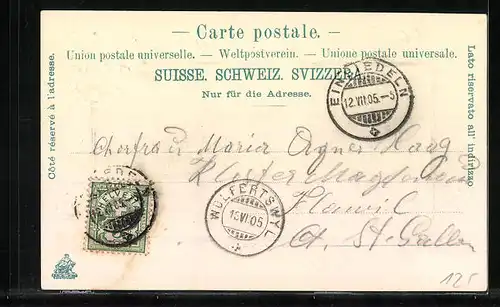 — Carte postale. —
Union postale universelle. — Weltpostverein. — Unione postale universale.
SUISSE. SCHWEIZ. SVIZZERA.
Nur für die Adresse.
Côté réservé à l'adresse.
Lato riservato all' indirizzo
EINSIEDELN
12.VII.05.–5
Maria
Kloster
Flawil
Ct. St. Gallen
WOLFERTSWYL
13.VII.05
125